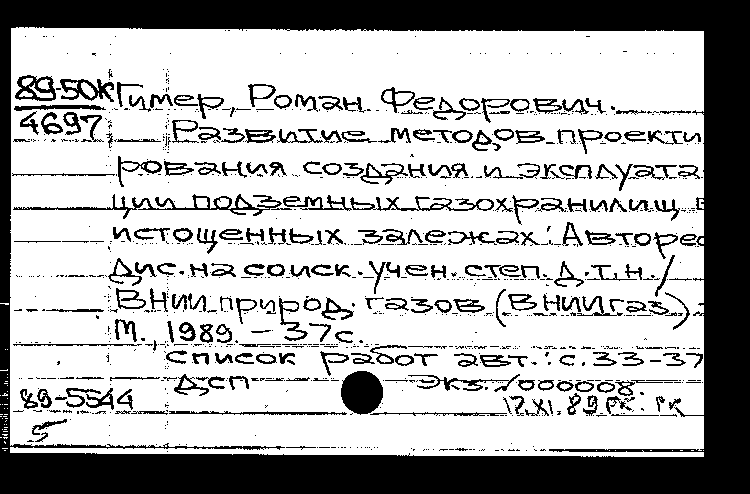 89-50к Гимер, Роман Федорович.
4697 Развитие методов проекти
рования создания и эксплуата
ции подземных газохранилищ в
истощенных залежах: Авторе
дис. на соиск. учен. степ. д.т.н. /
ВНИИ природ. газов (ВНИИгаз) -
М., 1989. - 37с.
список работ авт.: с. 33-37
дсп экз. 000008.
89-5544 17.XI.89 РК: РК
5